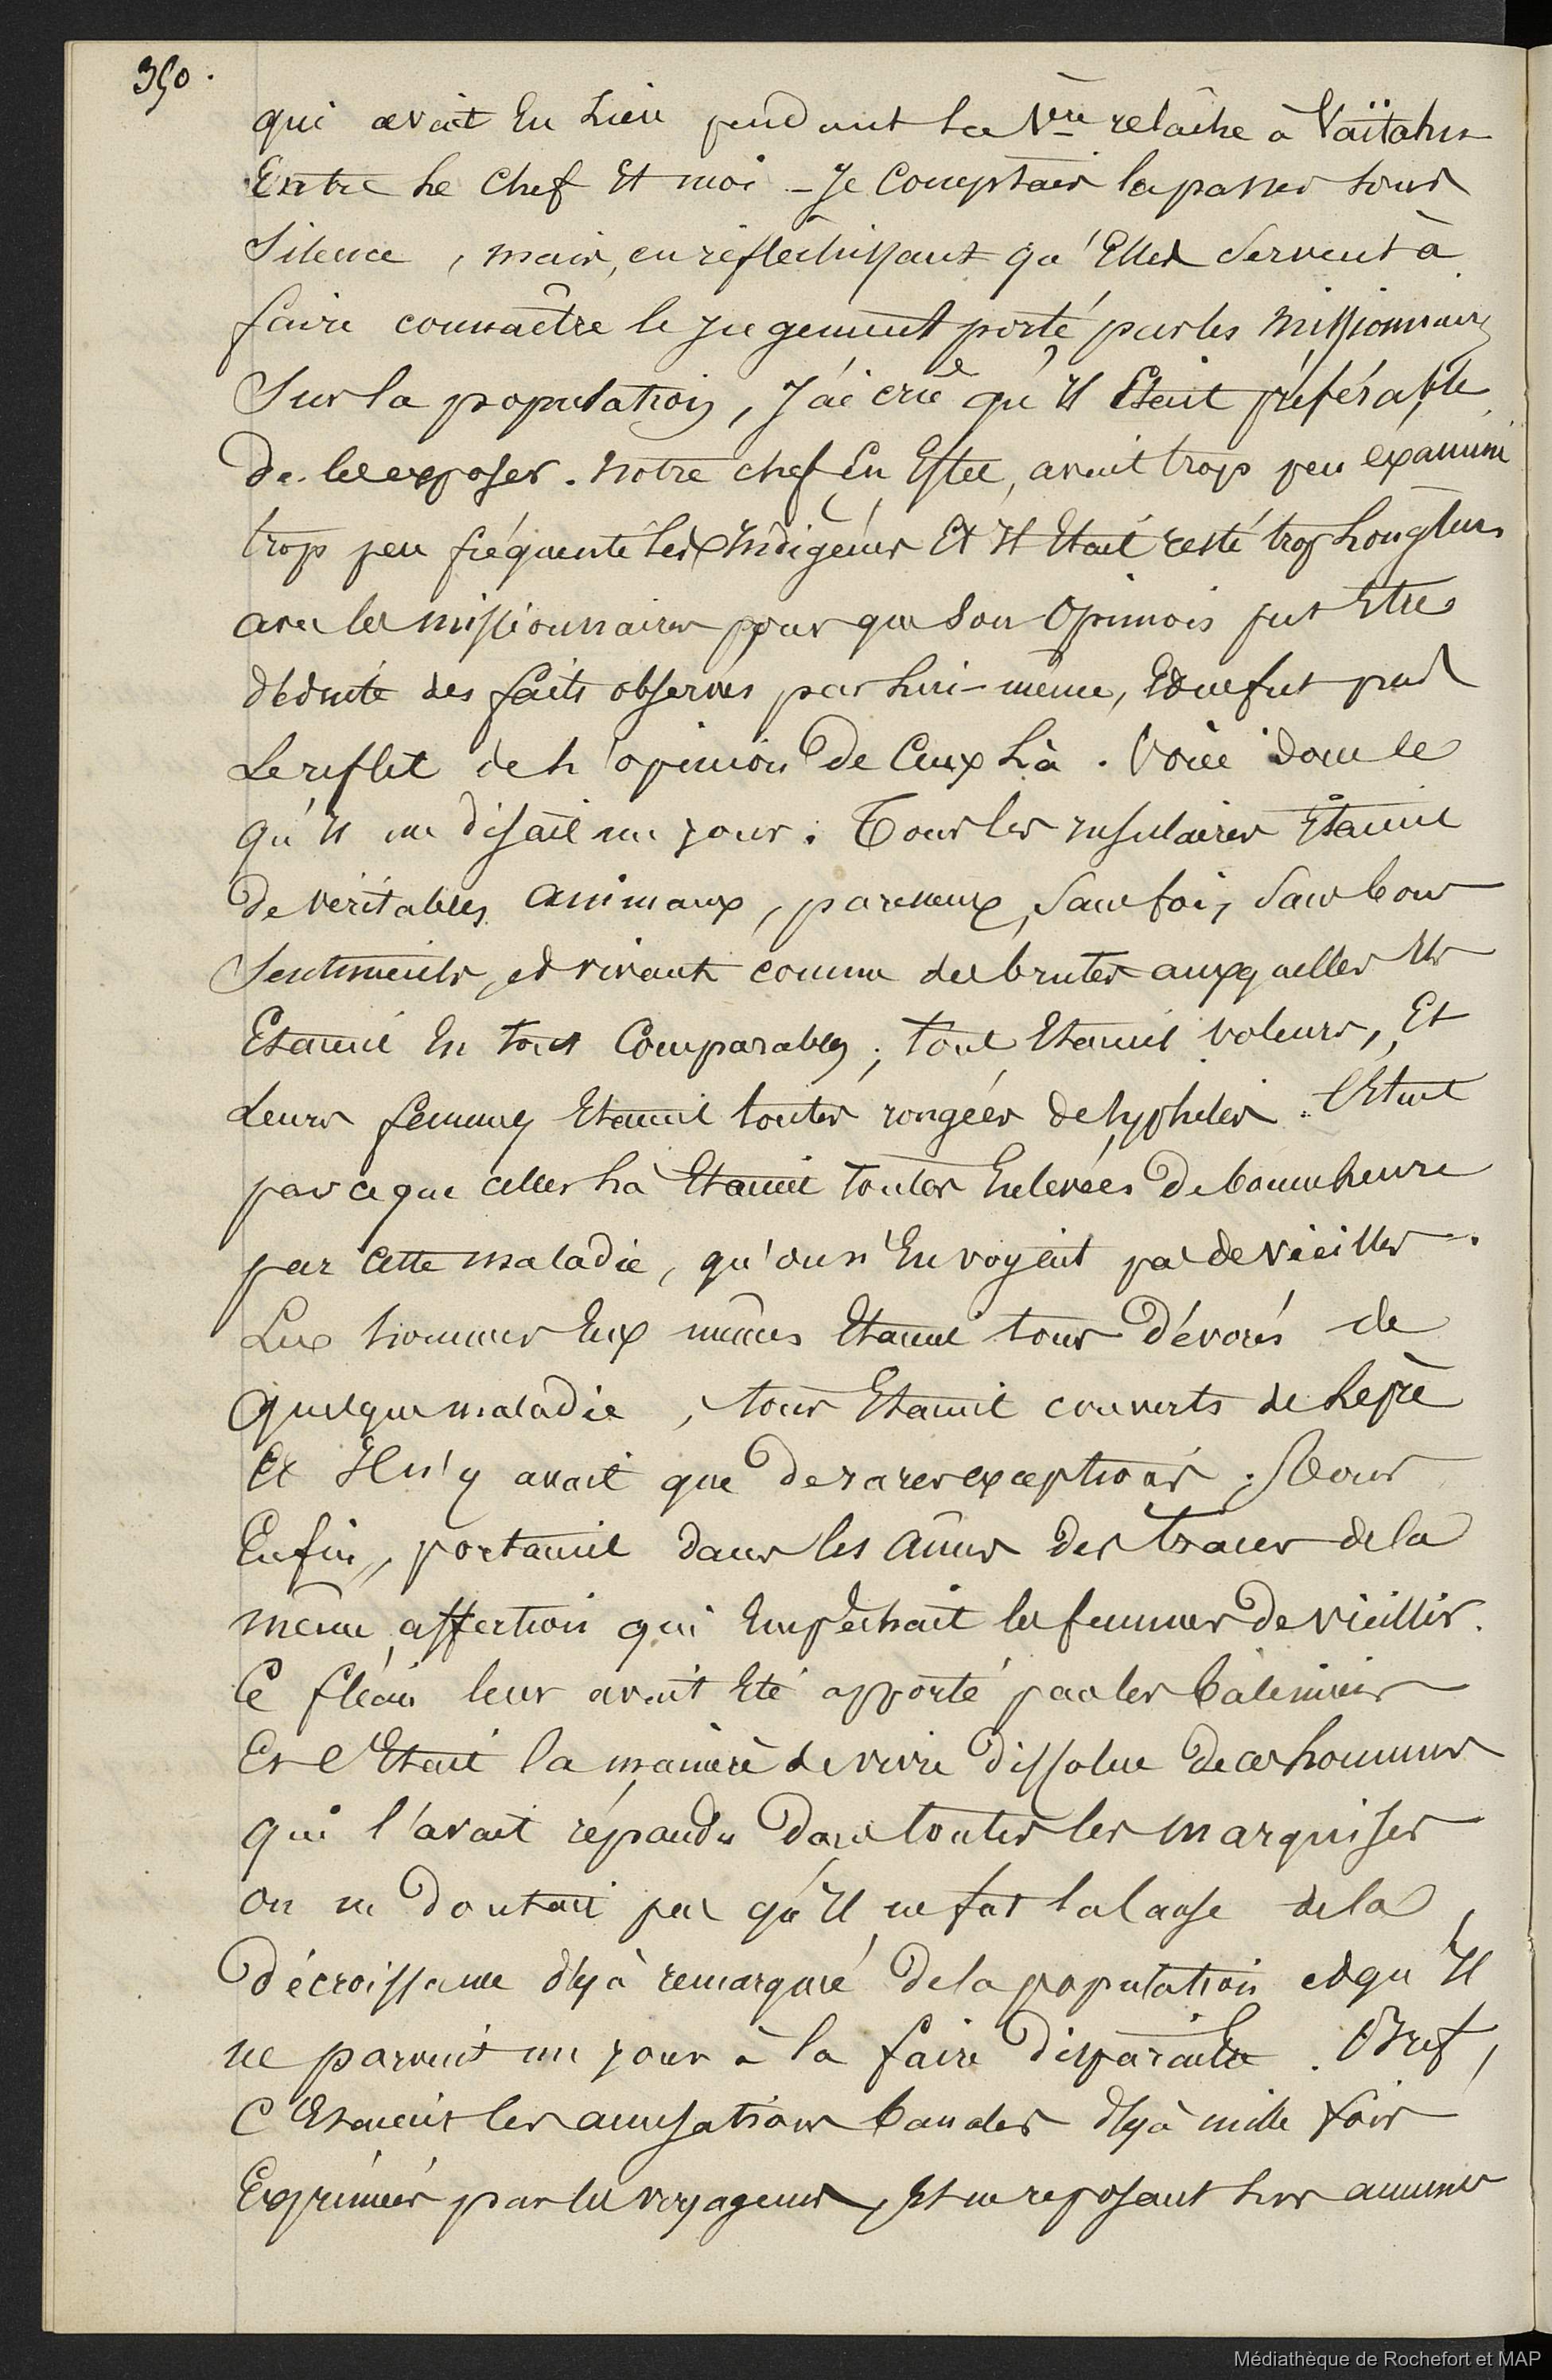 350.
qui avait Eu Lieu pendant la 1ère relâche à Vaïtahu
Entre Le Chef Et moi - Je Comptais la passer sous
Silence, mais, en réfléchissant qu'Elles Servent à
faire connaître le jugement porté par les Missionnaires
Sur la population, J'ai crû qu'Il Etait préférable
de les exposer. Notre chef En Effet, avait trop peu examiné
trop peu fréquenté les Indigènes Et Il Etait resté trop Longtems
avec les missionnaires pour que Son Opinion fut Etre
déduite des faits observés par Lui-même, Et ne fut pas
Le reflet de L'opinion De Ceux Là. Voici donc ce
qu'Il me disait un jour: Tous les insulaires Etaient
De véritables animaux, paresseux, Sans foi, Sans bons
Sentiments, et vivant comme des brutes auxquelles Ils
Etaient En tout Comparables; tous Etaient voleurs, Et
Leurs femmes Etaient toutes rongées de syphilis. C'Etait
parceque celles Là Etaient toutes Enlevées De bonne heure
par Cette maladie, qu'on n'En voyait pas de vieilles.
Les hommes Eux mêmes Etaient tous Dévorés de
quelque maladie, tous Etaient couverts de Lèpre
Et Il n'y avait que De rares exceptions; Tous
Enfin, portaient dans les aînes des traces de la
même affection qui Empêchait les femmes De vieillir.
Ce fléau leur avait Eté apporté par les baleiniers
Et C'Etait la manière de vivre Dissolue De ces hommes
qui l'avait répandu Dans toutes les Marquises
on ne Doutait pas qu'Il ne fut la Cause de la
Décroissance déjà remarqué De la population et qu'Il
ne parvint un jour à la faire Disparaitre. Bref,
C'Etaient les accusations banales déjà mille fois
Exprimées par les voyageurs, Et ne reposant Sur aucunes
Médiathèque de Rochefort et MAP